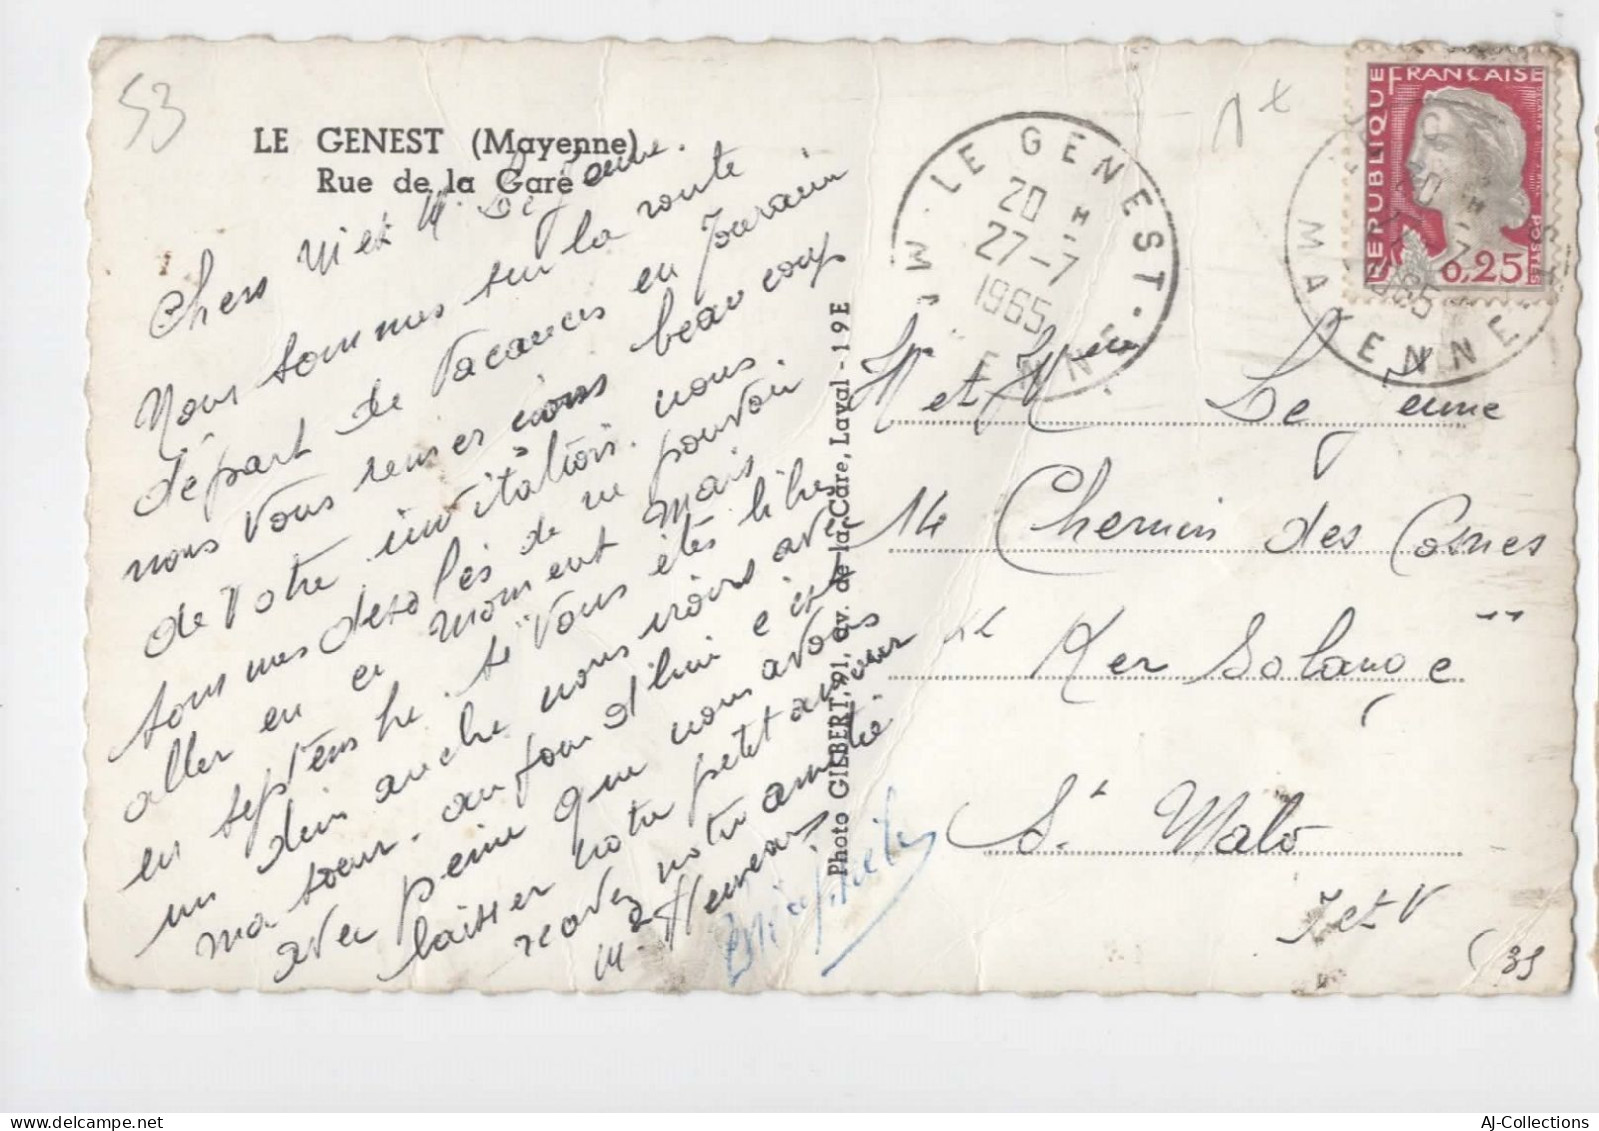 53
LE GENEST (Mayenne)
Rue de la Gare
Chers M et M. Le Jeune.
Nous sommes sur la route
départ de Vacances en Touraine
nous vous remercions beaucoups
de Votre invitation. nous
sommes desolés de ne pouvoir
aller en ce moment mais
en septembre si Vous êtes libres
un dimanche nous irons avec
ma soeur. au four d'lui c'est
avec peine que nous avons
laisser notre petit amour
recevez notre amitié
M. Heureais
Brigitte
Photo GILBERT, 91, av. de-la-Care, Laval - 19 E
LE GENEST
20 H
27-7
1965
MAYENNE
REPUBLIQUE FRANÇAISE
0,25
POSTES
MAYENNE
Mr et Mme Le Jeune
14 Chemin des Cosnes
Ker Solange
St Malo
I et V
35
AJ-Collections